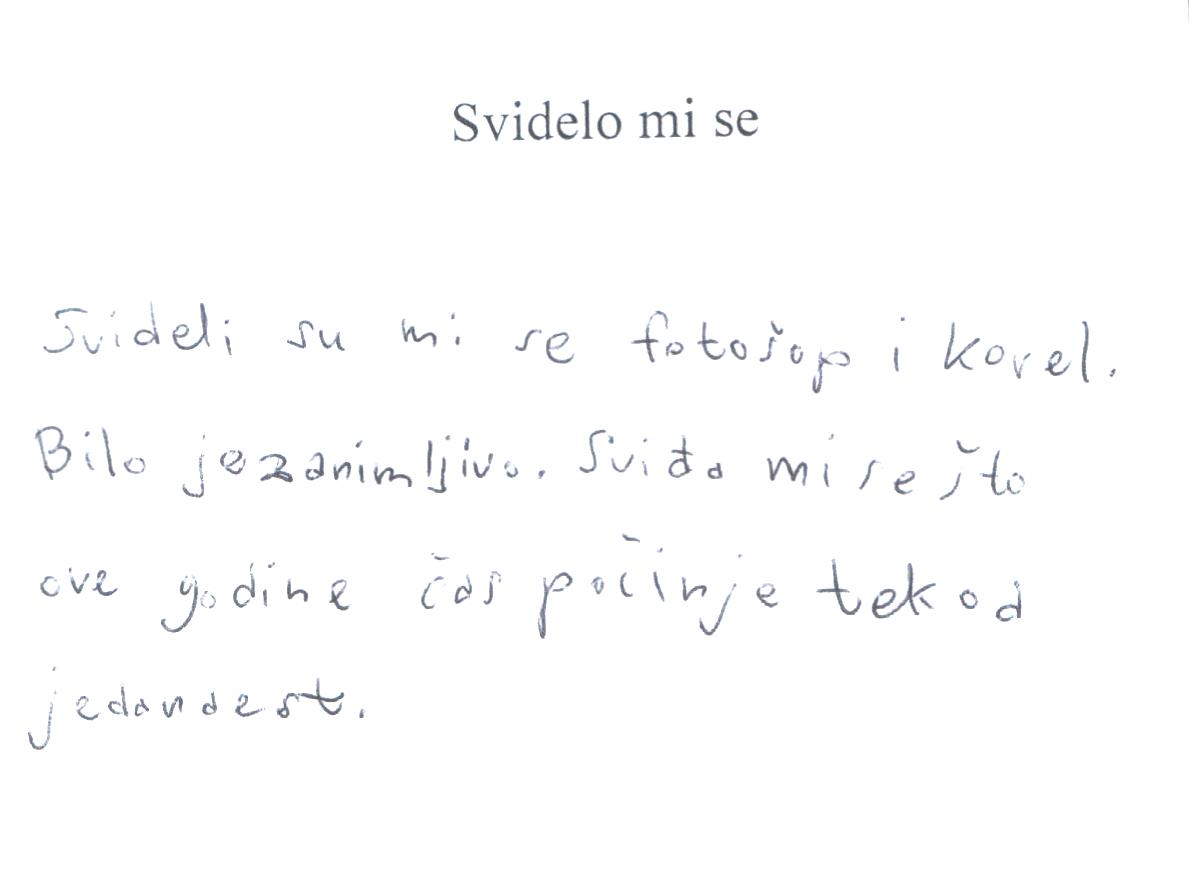 Svidelo mi se
Svideli su mi se fotošop i korel.
Bilo je zanimljivo. Sviđa mi se što
ove godine čas počinje tek od
jedanaest.